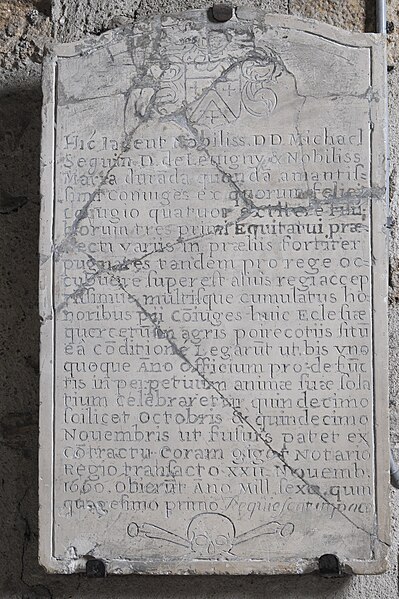 Hic Iacent Nobiliss. D D Michael
Seguin D. de Levigny & Nobiliss
Maria durada quondā amantis-
simi Coniuges ex quorum felici
coniugio quatuor extitere filii
quorum tres primi Equitatui præ
fecti variis in præliis fortiter
pugnātes tandem pro rege oc-
cubuere superest alius regi accep
tissimus multisque cumulatus ho
noribus pii Cōiuges huic Eclesiæ
quercetum in agris poirecotiis sitū
ea Cōditione Legarūt ut bis uno
quoque Āno Officium pro defūc
tis in perpetuum animæ suæ sola
tium celebraretur quindecimo
scilicet Octobris & quindecimo
Nouembris ut fusius patet ex
Cōtractu Coram gigot Notario
Regio transacto XXII Nouemb.
1660. Obierūt Ano Mill. sexc. quin
quagesimo primo Requiescant in pace